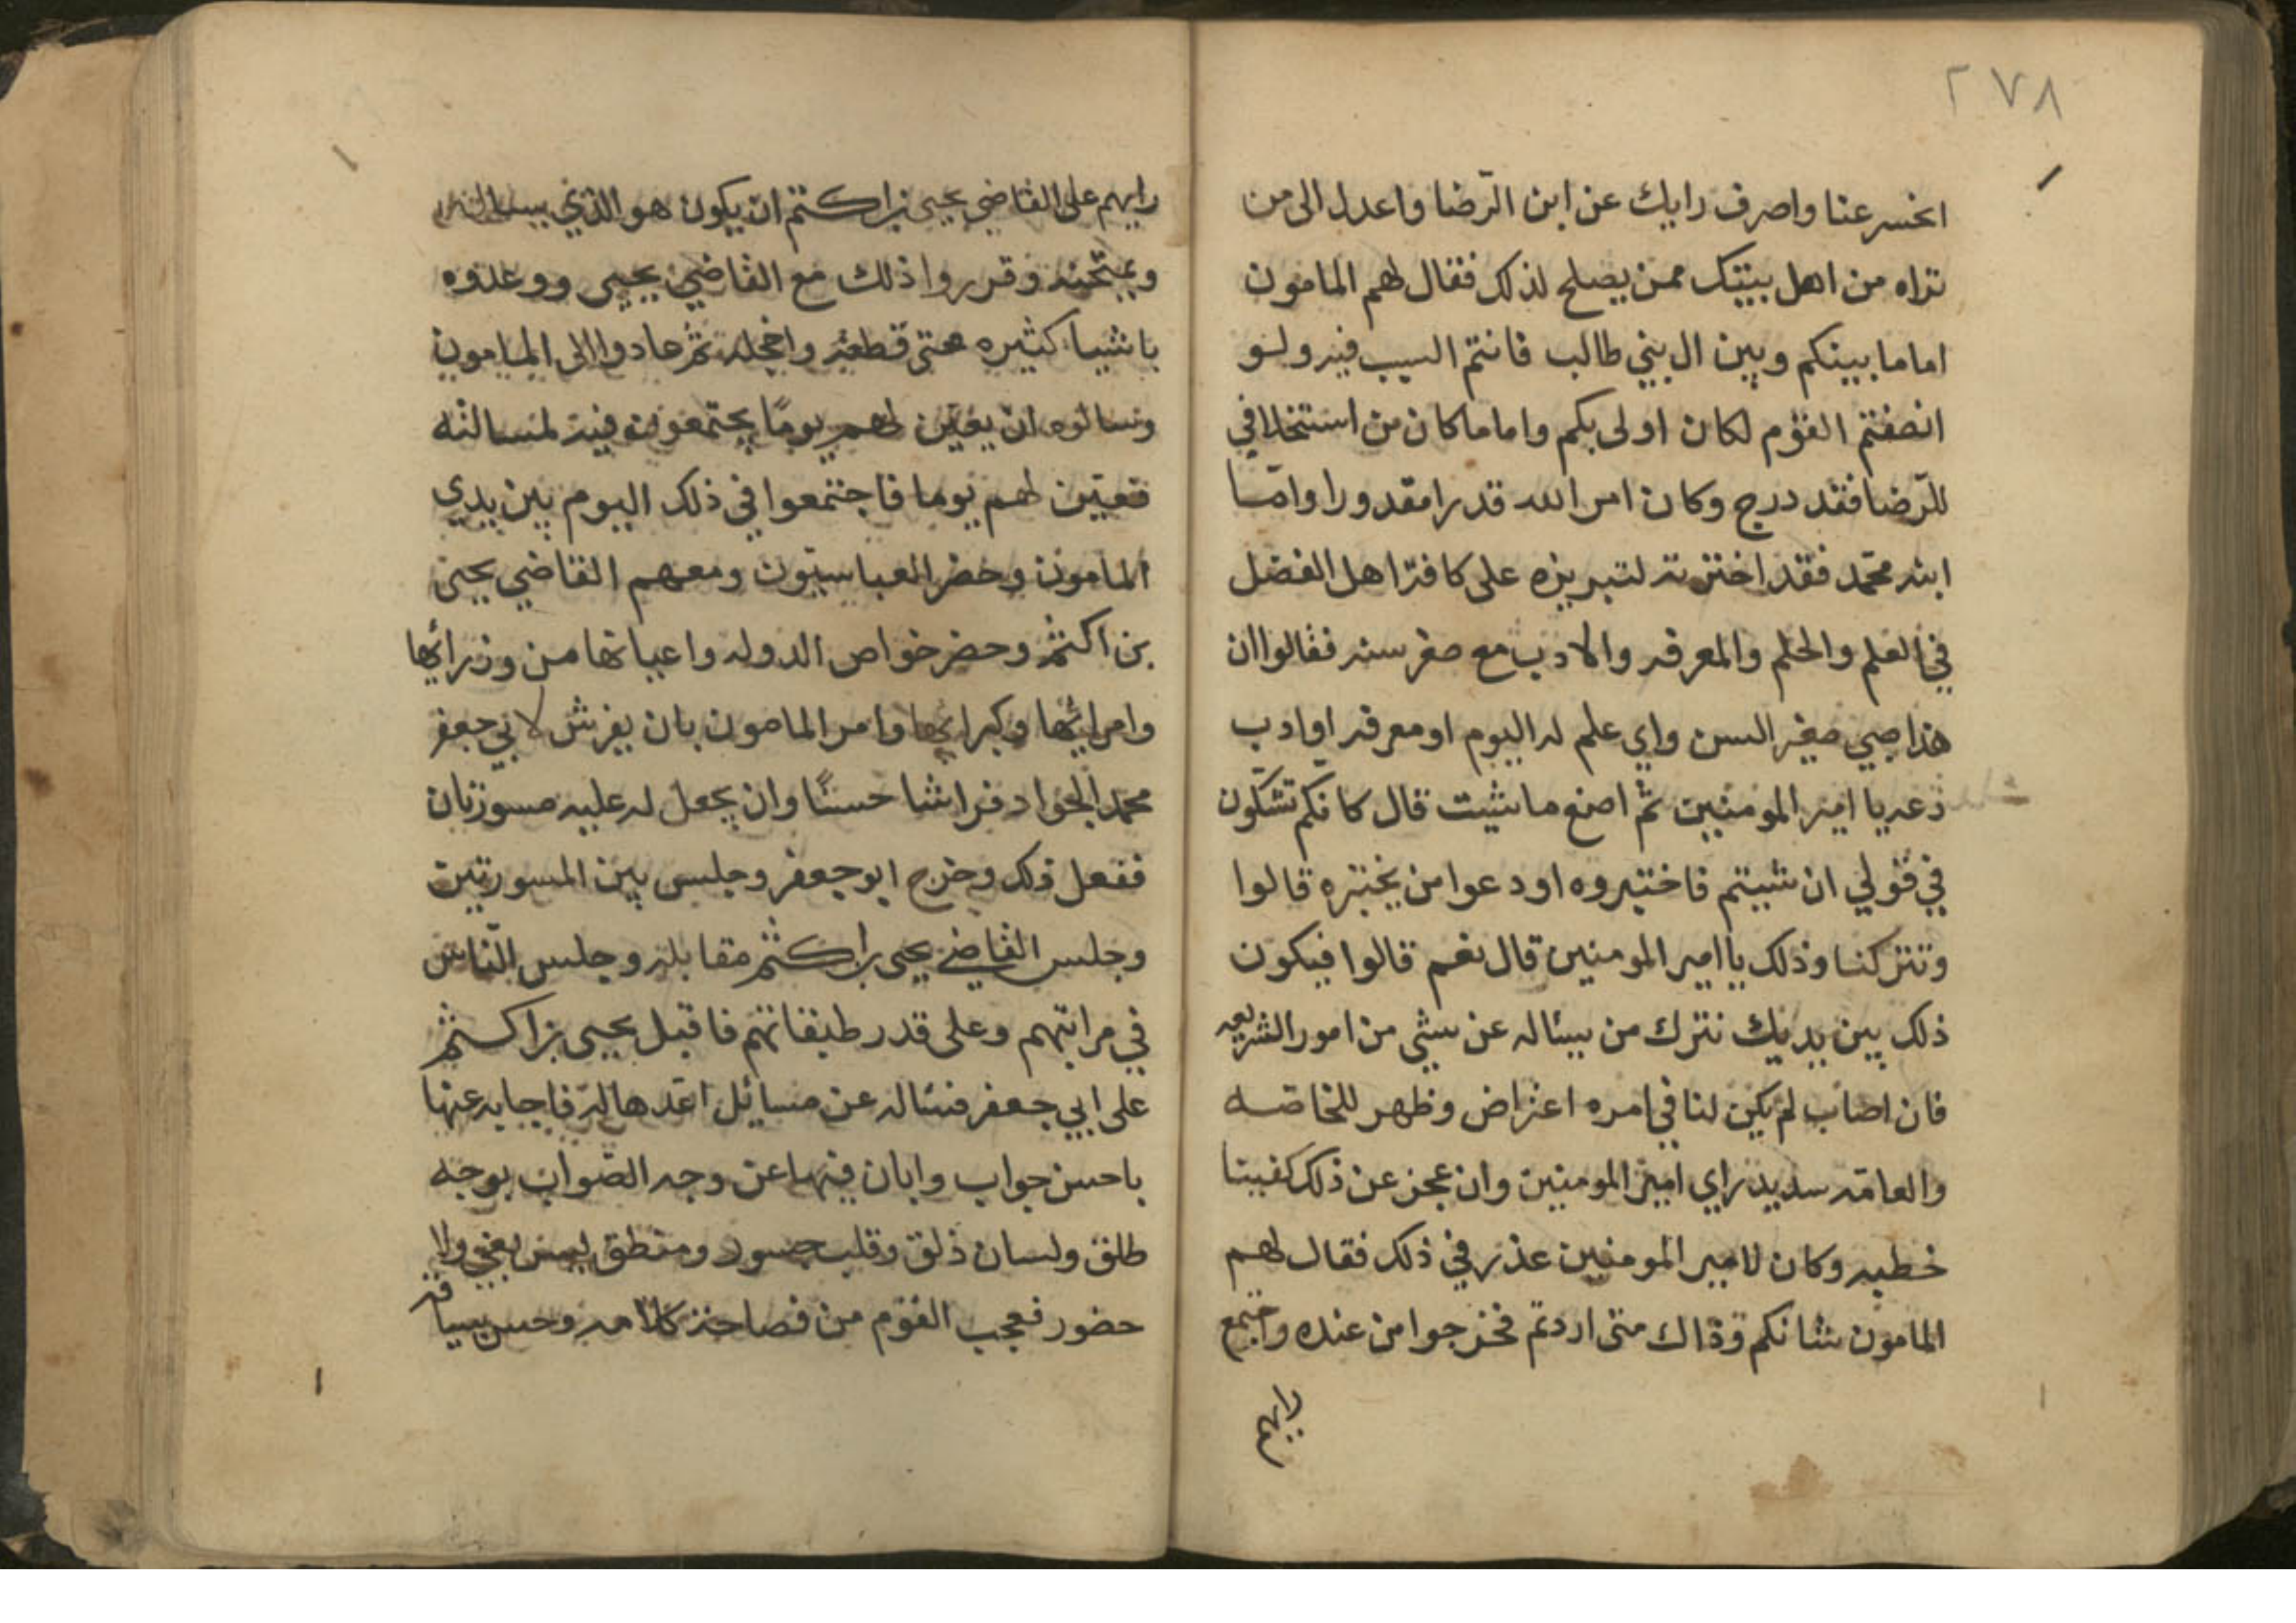 ٢٧٨
انحسر عنا واصرف رايك عن ابن الرّضا واعدل الى من
تراه من اهل بيتك ممن يصلح لذلك فقال لهم المامون
اما ما بينكم وبين ال بني طالب فانتم السبب فيه ولو
انصفتم القوم لكان اولى بكم واما ما كان من استخلافي
للرّضا فقد درج وكان امر الله قدرا مقدورا وامّا
ابنه محمّد فقد اخترته لتبريزه على كافة اهل الفضل
في العلم والحلم والمعرفه والادب مع صغر سنه فقالوا ان
هذا صبي صغير السن واي علم له اليوم او معرفه او ادب
دعه يا امير المومنين ثم اصنع ما شيت قال كانكم تشكّون
في قولي ان شيتم فاختبروه او دعوا من يختبره قالوا
وتتركنا وذلك يا امير المومنين قال نعم قالوا فيكون
ذلك بين يديك نترك من يسئاله عن شي من امور الشريعه
فان اصاب لم يكن لنا في امره اعتراض وظهر للخاصّه
والعامّه سديد راي امير المومنين وان عجز عن ذلك كفينا
خطبه وكان لامير المومنين عذر في ذلك فقال لهم
المامون شانكم وذاك متى اردتم فخرجوا من عنده واجتمع
رايهم
رايهم على القاضي يحيى بن اكثم ان يكون هو الذي يساله
ويمتحنه وقرروا ذلك مع القاضي يحيى ووعدوه
باشيا كثيره متى قطعه واخجله ثم عادوا الى المامون
وسالوه ان يعيّن لهم يومًا يجتمعون فيه لمسالته
فعيّن لهم يوما فاجتمعوا في ذلك اليوم بين يدي
المامون وحضر العباسيّون ومعهم القاضي يحيى
بن اكثم وحضر خواص الدوله واعيانها من وزرائها
وامرائها وكبرائها وامر المامون بان يفرش لابي جعفر
محمد الجواد فراشا حسنًا وان يجعل له عليه مسورتان
ففعل ذلك وخرج ابو جعفر وجلس بين المسورتين
وجلس القاضي يحيى بن اكثم مقابله وجلس النّاس
في مراتبهم وعلى قدر طبقاتهم فاقبل يحيى بن اكثم
على ابي جعفر فسئاله عن مسائل اعّدها له فاجابه عنها
باحسن جواب وابان فيها عن وجه الصّواب بوجه
طلق ولسان ذلق وقلب جسور ومنطق ليس بعي ولا
حضور فعجب القوم من فصاحة كلامه وحسن سياقه